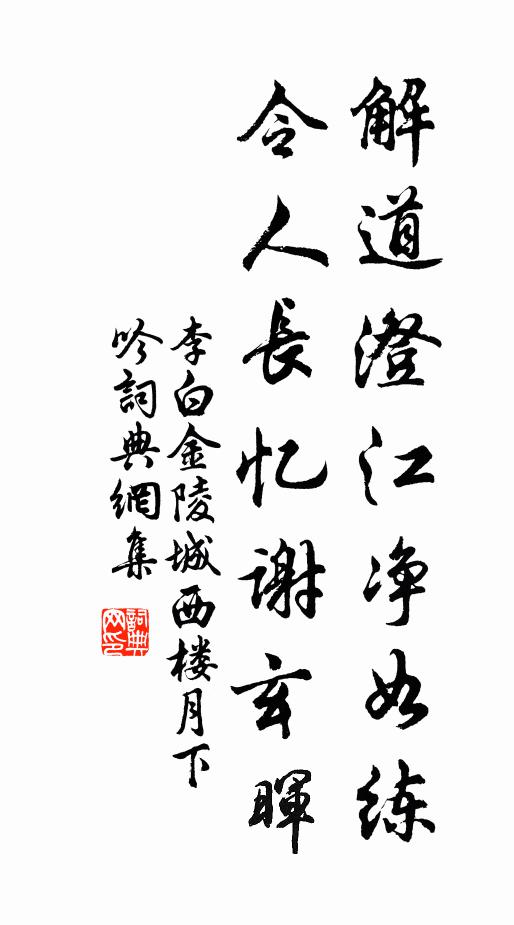 解道澄江净如练
令人長忆謝玄暉
李白金陵城西楼月下
吟詞典網集
詞典
网印